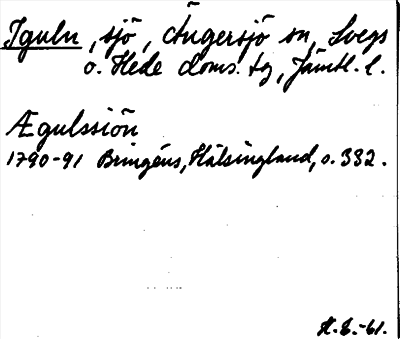 Iguln, sjö, Ängersjö sn, Svegs
o. Hede doms. tg, Jämtl. l.
Ægulssiön
1790-91 Bringéus, Hälsingland, s. 332.
H.E.-61.